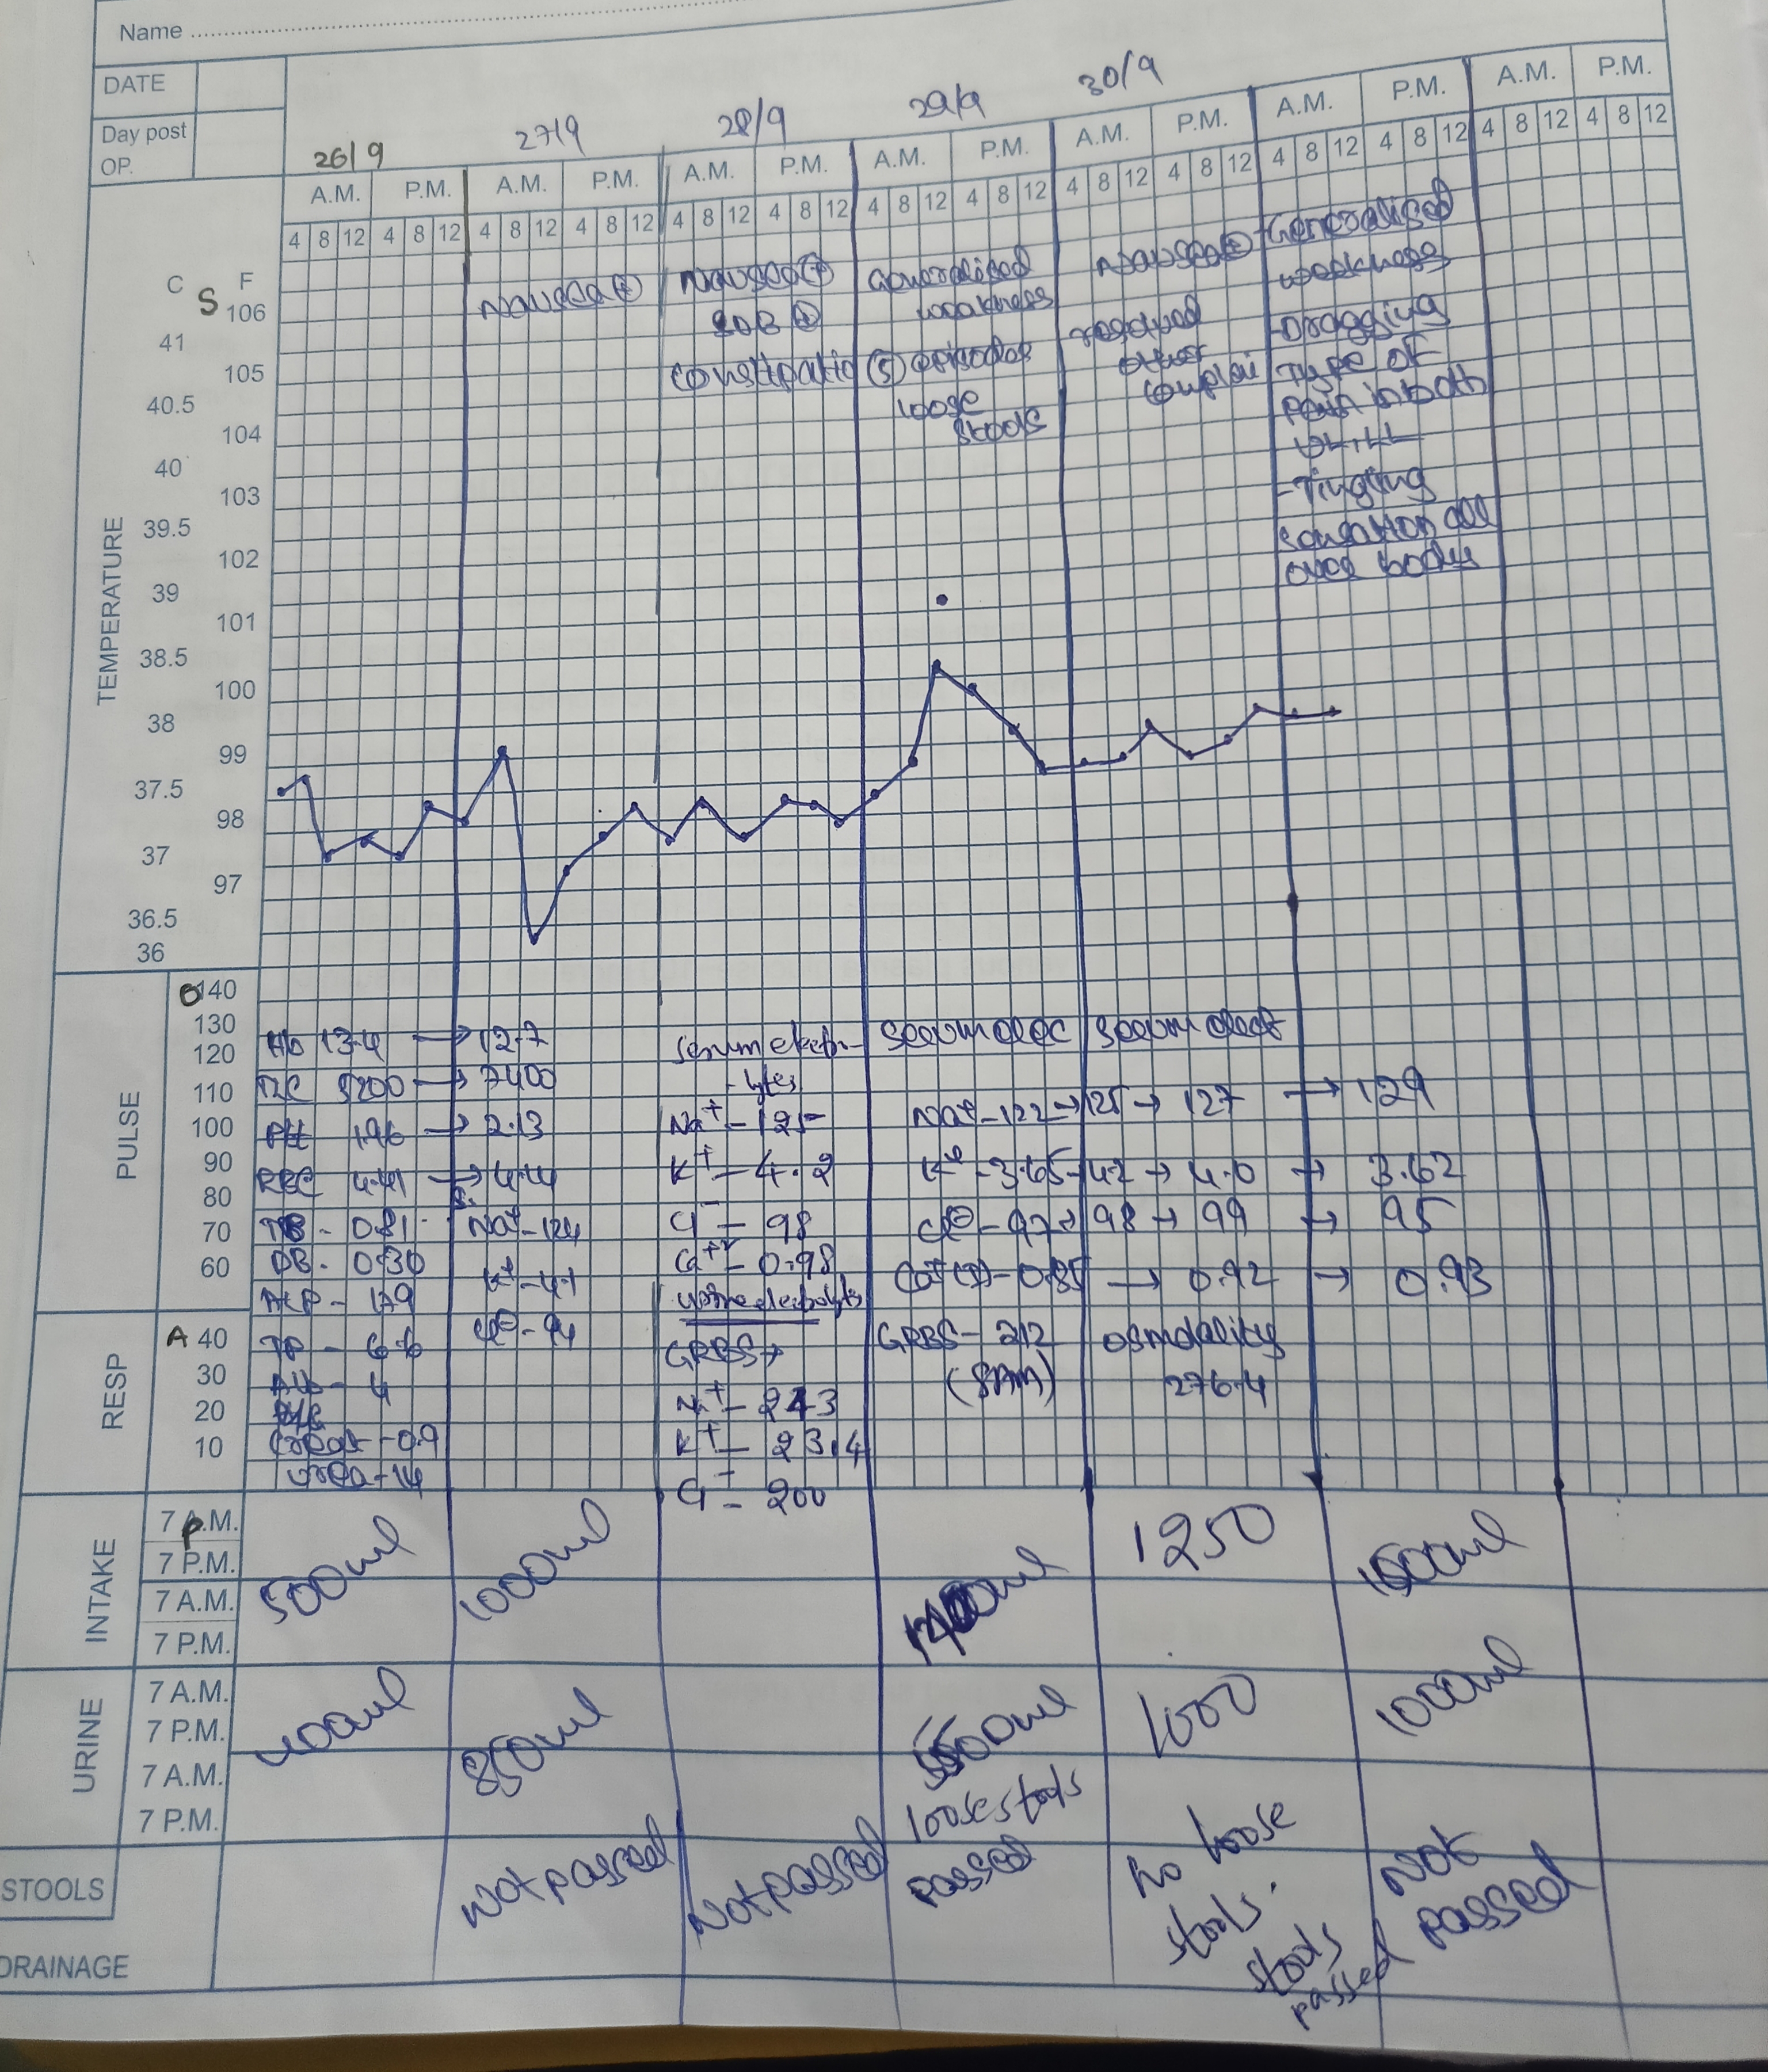 Name
DATE
Day post
OP.
26/9
27/9
28/9
29/9
30/9
A.M. P.M. A.M. P.M. A.M. P.M. A.M. P.M. A.M. P.M. A.M. P.M. A.M. P.M.
4 8 12 4 8 12 4 8 12 4 8 12 4 8 12 4 8 12 4 8 12 4 8 12 4 8 12 4 8 12 4 8 12 4 8 12 4 8 12 4 8 12
Nausea (+)
Nausea (+)
SOB (+)
constipatio
Generalised
weakness
(5) episodes
loose
stools
Nausea
resolved
other
complai
Generalised
weakness
-Dragging
type of
pain in both
UL, LL
-Tingling
sensation all
over body
TEMPERATURE
C S F
106
41
105
40.5
104
40
103
39.5
102
39
101
38.5
100
38
99
37.5
98
37
97
36.5
36
PULSE
O 140
130
120
110
100
90
80
70
60
RESP
A 40
30
20
10
Hb 13.4 → 12.7
TLC 5200 → 7400
Plt 1.96 → 2.13
RBC 4.41 → 4.44
TB - 0.81
DB - 0.30
ALP - 179
TP - 6.6
Alb - 4
Creat - 0.9
urea - 14
S.
Na+ - 124
K+ - 4.1
Cl⊖ - 94
Serum electro-
-lytes
Na+ - 125
K+ - 4.2
Cl- - 98
Ca++ - 0.98
urine electrolytes
GRBS→
Na+ - 243
K+ - 23.4
Cl- - 200
Serum elec
Serum elect
Na+ - 122 → 125 → 127 → 129
K+ - 3.65 - 4.2 → 4.0 → 3.62
Cl⊖ - 97 → 98 → 99 → 95
Ca+ - 0.85 → 0.92 → 0.93
GRBS - 212
(8AM)
osmolality
276.4
INTAKE
7 P.M.
7 P.M.
7 A.M.
7 P.M.
500ml
1000ml
1250
URINE
7 A.M.
7 P.M.
7 A.M.
7 P.M.
400ml
850ml
1000
1000ml
STOOLS
Not passed
Not passed
loose stools
passed
No loose
stools.
stools
passed
Not
passed
DRAINAGE